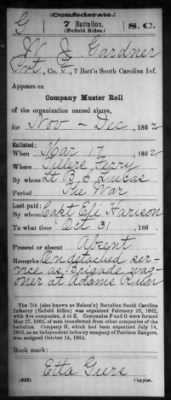 (Confederate.)
G 7 Battalion. S. C.
(Enfield Rifles.)
W J Gardner
Pvt, Co. , 7 Batt'n South Carolina Inf.
Appears on
Company Muster Roll
of the organization named above,
for Nov – Dec, 1862
Enlisted:
When Mar 17, 1862
Where Ferry
By whom Lt B S Lucas
Period The War
Last paid:
By whom Capt Eli Harison
To what time Oct 31, 186
Present or absent Absent
Remarks: On detached ser-
vice as Brigade wag-
oner at Adams Run
The 7th (also known as Nelson's) Battalion South Carolina
Infantry (Enfield Rifles) was organized February 22, 1862,
with five companies, A to E. Companies F and G were formed
May 27, 1862, of men transferred from other companies of the
battalion. Company H, which had been organized July 14,
1862, as an Independent company of Partisan Rangers,
was assigned October 14, 1862.
Book mark:
Etta Geers
(642) Copyist.